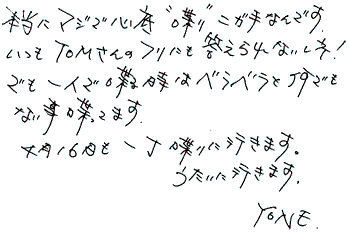 本当にマジで心底“喋り”ニガ手なんです
いつもTOMさんのフリにも答えられないしネ！
でも一人で喋る時はベラベラとTVでも
ない事喋ってます。
4月16日も一丁喋りに行きます。
うたいに行きます。
YONE.